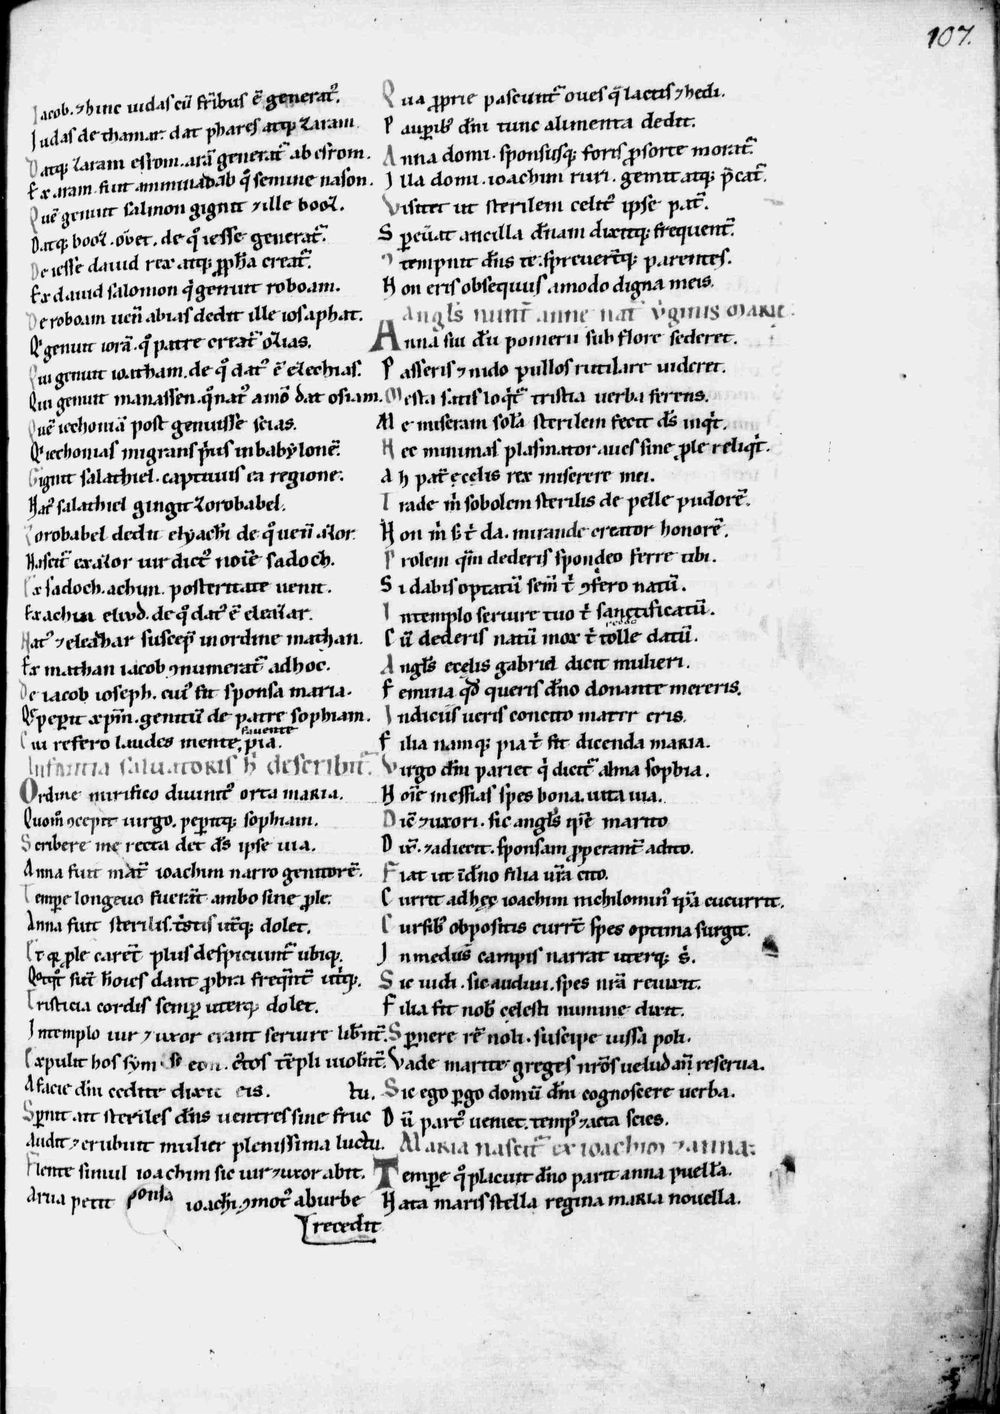 107.
Iacob. ⁊ hinc iudas cū fr̄ibus ē generat᷒.
Iudas de thamar. dat phares atq; zaram.
Datq; zaram esrom. arā generat᷑ ab esrom.
Ex aram. fuit amminadab q̄ semine nason.
Quē genuit salmon gignit ⁊ ille booz.
Datq; booz. obet. de q̊ iesse generat᷑.
De iesse dauid rex atq; ꝓph̄a creat᷑.
Ex dauid salomon q̄ genuit roboam.
De roboam uen̄ abias dedit ille iosaphat.
Q̇ genuit iorā. q̊ patre creat᷑ ozias.
Qui genuit ioatham. de q̊ dat᷒ ē ezechias.
Qui genuit manassen. q̊ nat᷒ amō dat osiam.
Quē iechoniā post genuisse scias.
Q̇ iechonias migrans p̄us in babylonē.
Gignit salathiel. captiuus ea regione.
Nat᷒ salathiel gingit zorobabel.
Zorobabel dedit elyachī de q̊ uen̄ azor
Nascit᷑ ex azor uir dict᷒ noīe sadoch.
Ex sadoch. achim. posteritate uenit.
Ex achim eliud. de q̊ dat᷒ ē eleazar.
Nat᷒ ⁊ eleazar suscep̄ in ordine mathan.
Ex mathan iacob ꝯnumerat᷑ adhoc.
De iacob ioseph. cui᷒ fit sponsa maria.
Q̄ peperit xp̄m. genitū de patre sophiam.
fauente
Cui refero laudes mente pia.
Infantia saluatoris h̄ describit᷑.
Ordine mirifico diuinit᷒ orta maria.
Quom̄ ꝯcepit uirgo. peperitq; sophiam.
Scribere me recta det d̄s ipse uia.
Anna fuit mat᷑ ioachim narro genitorē.
Tempore longeuo fuerāt ambo sine ꝓle.
Anna fuit sterilis. t᷑stis ut᷑q; dolet.
Et q; ꝓle carēt plus despiciunt᷑ ubiq;.
Quotq̊t sūt hoīes dant ꝓbra freq̄nt᷑ ut᷑q;.
Tristicia cordis semper uterq; dolet.
In templo uir ⁊ uxor erant seruire libent᷑.
Expulit hos sym eon. cōtos tēpli uiolent᷑.
A facie dn̄i cedite dixit eis.
tu.
Spernit ait steriles dn̄s uentres sine fruc
Audit ⁊ erubuit mulier plenissima luctu.
Flente simul ioachim sic uir ⁊ uxor abit.
Arua petit sponsa ioachī. ꝯmot᷒ ab urbe
recedit
Qua ꝓprie pascunt᷑ oues q̄ lactis ⁊ hedi.
Pauperib᷒ dn̄i tunc alimenta dedit.
Anna domi. sponsusq; foris ꝓ sorte morat᷑.
Illa domi. ioachim ruri. gemit atq; p̄cat᷑.
Visitet ut sterilem celit᷒ ipse pat᷑.
Spernat ancilla dn̄am dixitq; frequent᷑.
Contempnit dn̄s te. spreuer̄tq; parentes.
Non eris obsequiis amodo digna meis.
Angl̄s nunt᷑ anne nat᷑ v̄ginis Marie.
Anna sui dū pomerii sub flore sederet.
Passeris ⁊ nido pullos rutilare uideret.
Mesta satis loq̇t᷑ tristia uerba ferens.
Me miseram solā sterilem fecit d̄s inq̇t.
Nec minimas plasmator aues sine ꝓle reliq̇t.
Ah pat᷑ e celis rex miserere mei.
Trade m̄ sobolem sterilis de pelle pudorē.
Non m̄ s; t̄ da. mirande creator honorē.
Prolem q̄m dederis spondeo ferre tibi.
Si dabis optatū sem̄ t̄ ꝯfero natū.
In templo seruire tuo t̄ sanctificatū.
reddo
Cū dederis natū mox t̄ tolle datū.
Angl̄s e celis gabriel dicit mulieri.
Femina qd̄ queris dn̄o donante mereris.
Indiciis ueris concito mater eris.
Filia namq; pia t̄ fit dicenda maria.
Virgo dn̄m pariet q̇ dicit᷑ alma sophia.
Noīe messias spes bona. uita uia.
Dic̄ ⁊ uxori. sic angl̄s ip̄e marito
Dic̄. ⁊ adiecit. sponsam ꝓperant᷑ adito.
Fiat ut ī dn̄o filia ur̄a cito.
Currit ad hec ioachim nichilomin᷒ ip̄a cucurrit.
Cursib᷒ obpositis currēt spes optima surgit.
In mediis campis narrat uterq; s̄.
Sic uidi. sic audiui. spes nr̄a reuixit.
Filia fit nob̄ celesti numine dixit.
Spernere rē noli. suscipe iussa poli.
Vade marite greges nr̄os uelud an̄ reserua.
Sic ego ꝑgo domū dn̄i cognoscere uerba.
Dū part᷒ ueniet. temp᷒ ⁊ acta scies.
Maria nascit᷑ ex ioachim ⁊ anna:
Tempore q̊ placuit dn̄o parit anna puellā.
Nata maris stella regina maria nouella.